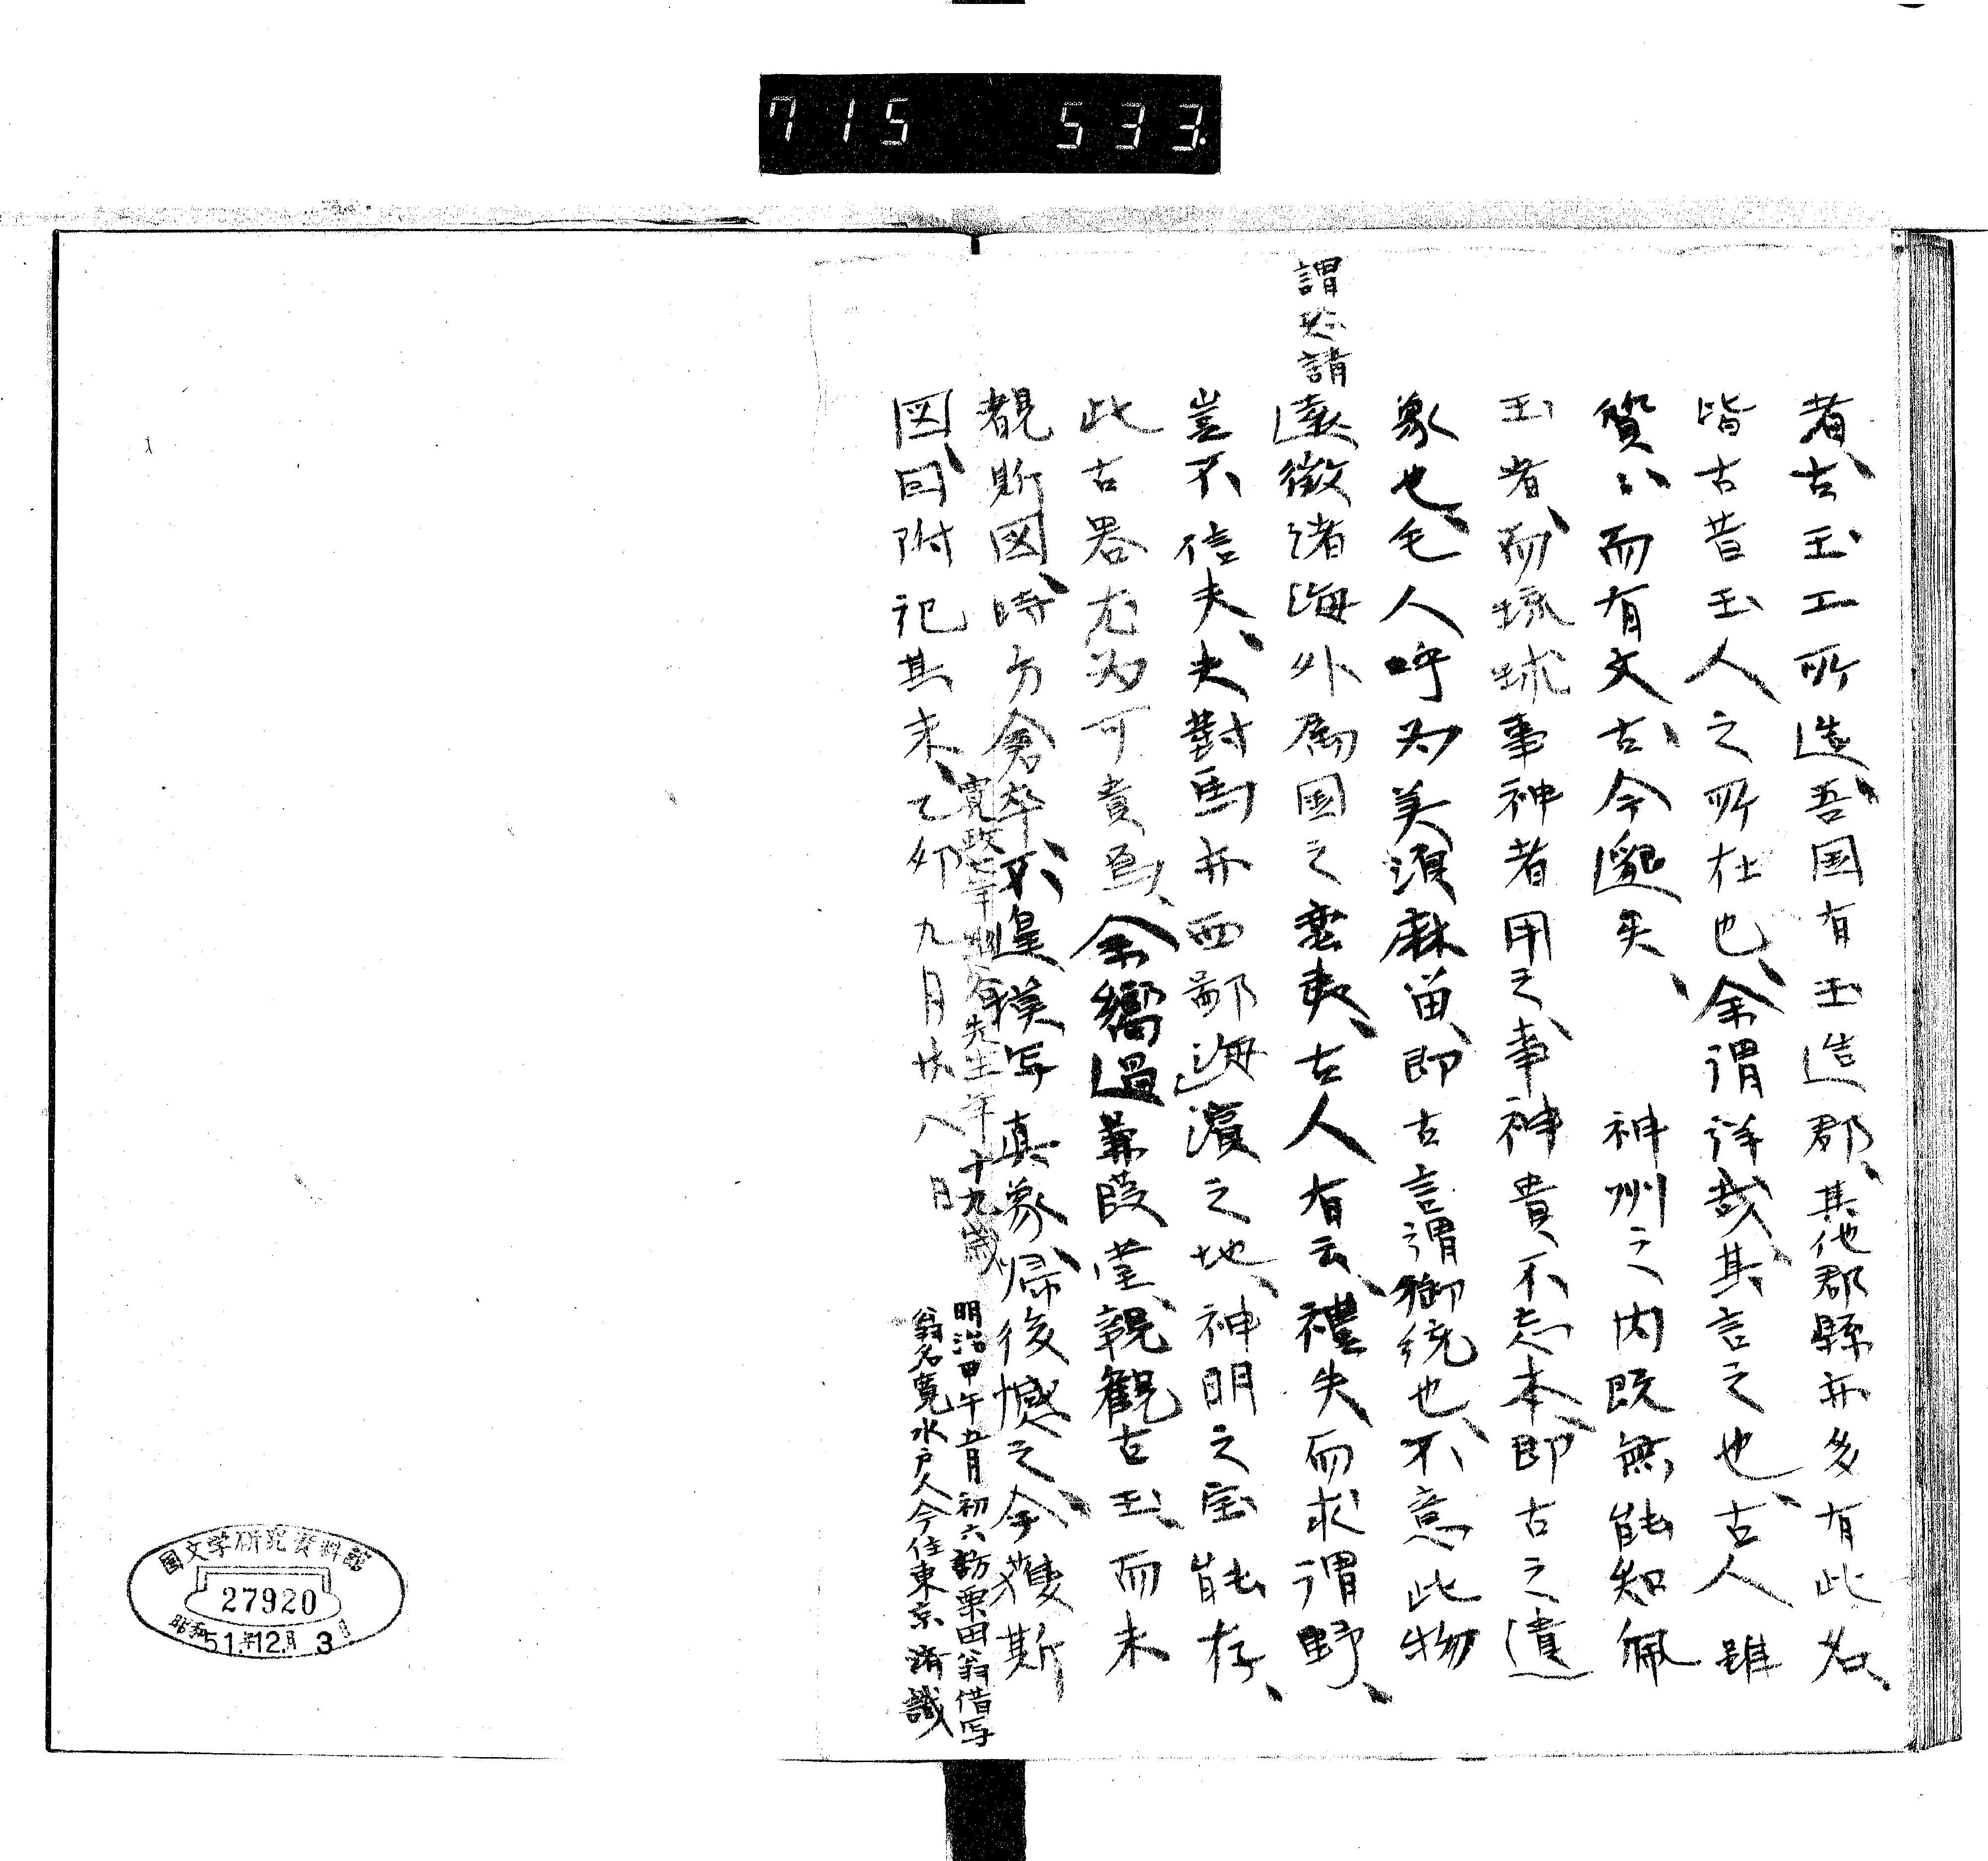 715 533
者、古玉工所造、吾国有玉造郡、其他郡縣亦多有此名、
皆古昔玉人之所在也、余謂詳哉其言之也、古人雖
質、而有文、古今邈矣、神州之内既無能知佩
玉者、而琉球事神者用之、事神貴不忘本、即古之遺
象也、毛人呼為美須麻苗、即古言謂御統也、不意此物
遠徴諸海外属国之蛮夷、古人有云、禮失而求謂野、
謂恐諸
豈不信夫、夫對馬亦西鄙海濱之地、神明之宝能存、
此古器尤為可貴焉、余嚮過蒹葭堂、親観古玉、而未
覩斯図、時方倉卒、不遑摸写真象、帰後憾之、今獲斯
図、因附記其末、乙卯九月廿八日
寛政七年 幽谷先生年十九歳
明治甲午五月初六訪栗田翁借写
翁名寛水戸人今住東京 済識
国文学研究資料館
27920
昭和51年12月3日